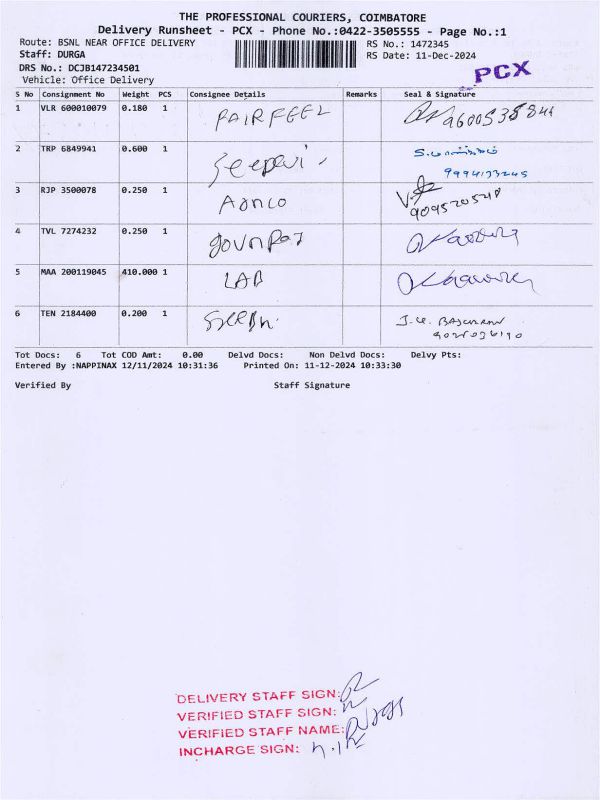 THE PROFESSIONAL COURIERS, COIMBATORE
Delivery Runsheet - PCX - Phone No.:0422-3505555 - Page No.:1
Route: BSNL NEAR OFFICE DELIVERY
RS No.: 1472345
Staff: DURGA
RS Date: 11-Dec-2024
DRS No.: DCJB147234501
PCX
Vehicle: Office Delivery
S No Consignment No Weight PCS Consignee Details Remarks Seal & Signature
1 VLR 600010079 0.180 1 FAIRFEEL
2 TRP 6849941 0.600 1
3 RJP 3500078 0.250 1
4 TVL 7274232 0.250 1
5 MAA 200119045 410.000 1 LAB
6 TEN 2184400 0.200 1
Tot Docs: 6 Tot COD Amt: 0.00 Delvd Docs: Non Delvd Docs: Delvy Pts:
Entered By :NAPPINAX 12/11/2024 10:31:36 Printed On: 11-12-2024 10:33:30
Verified By Staff Signature
DELIVERY STAFF SIGN:
VERIFIED STAFF SIGN:
VERIFIED STAFF NAME:
INCHARGE SIGN: